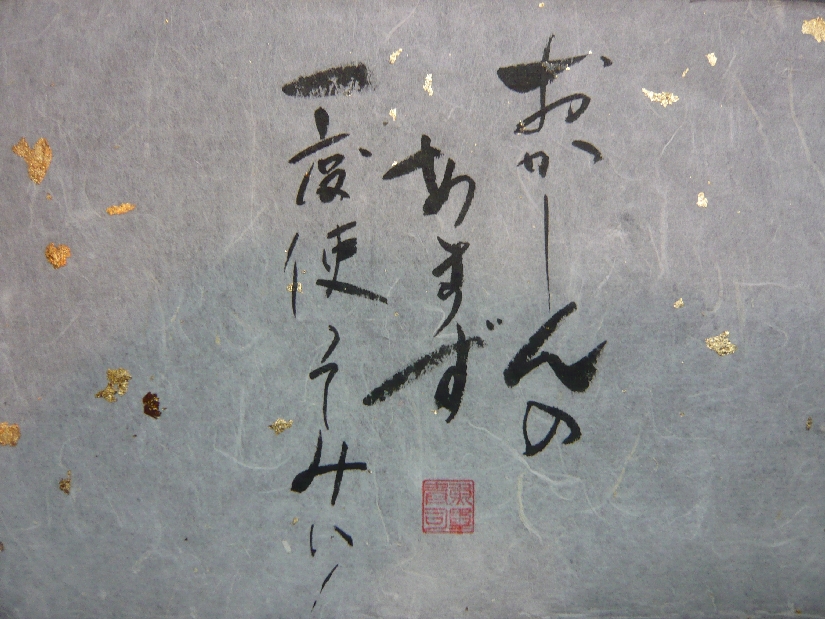 おかーんの
あまず
一度使うてみい!